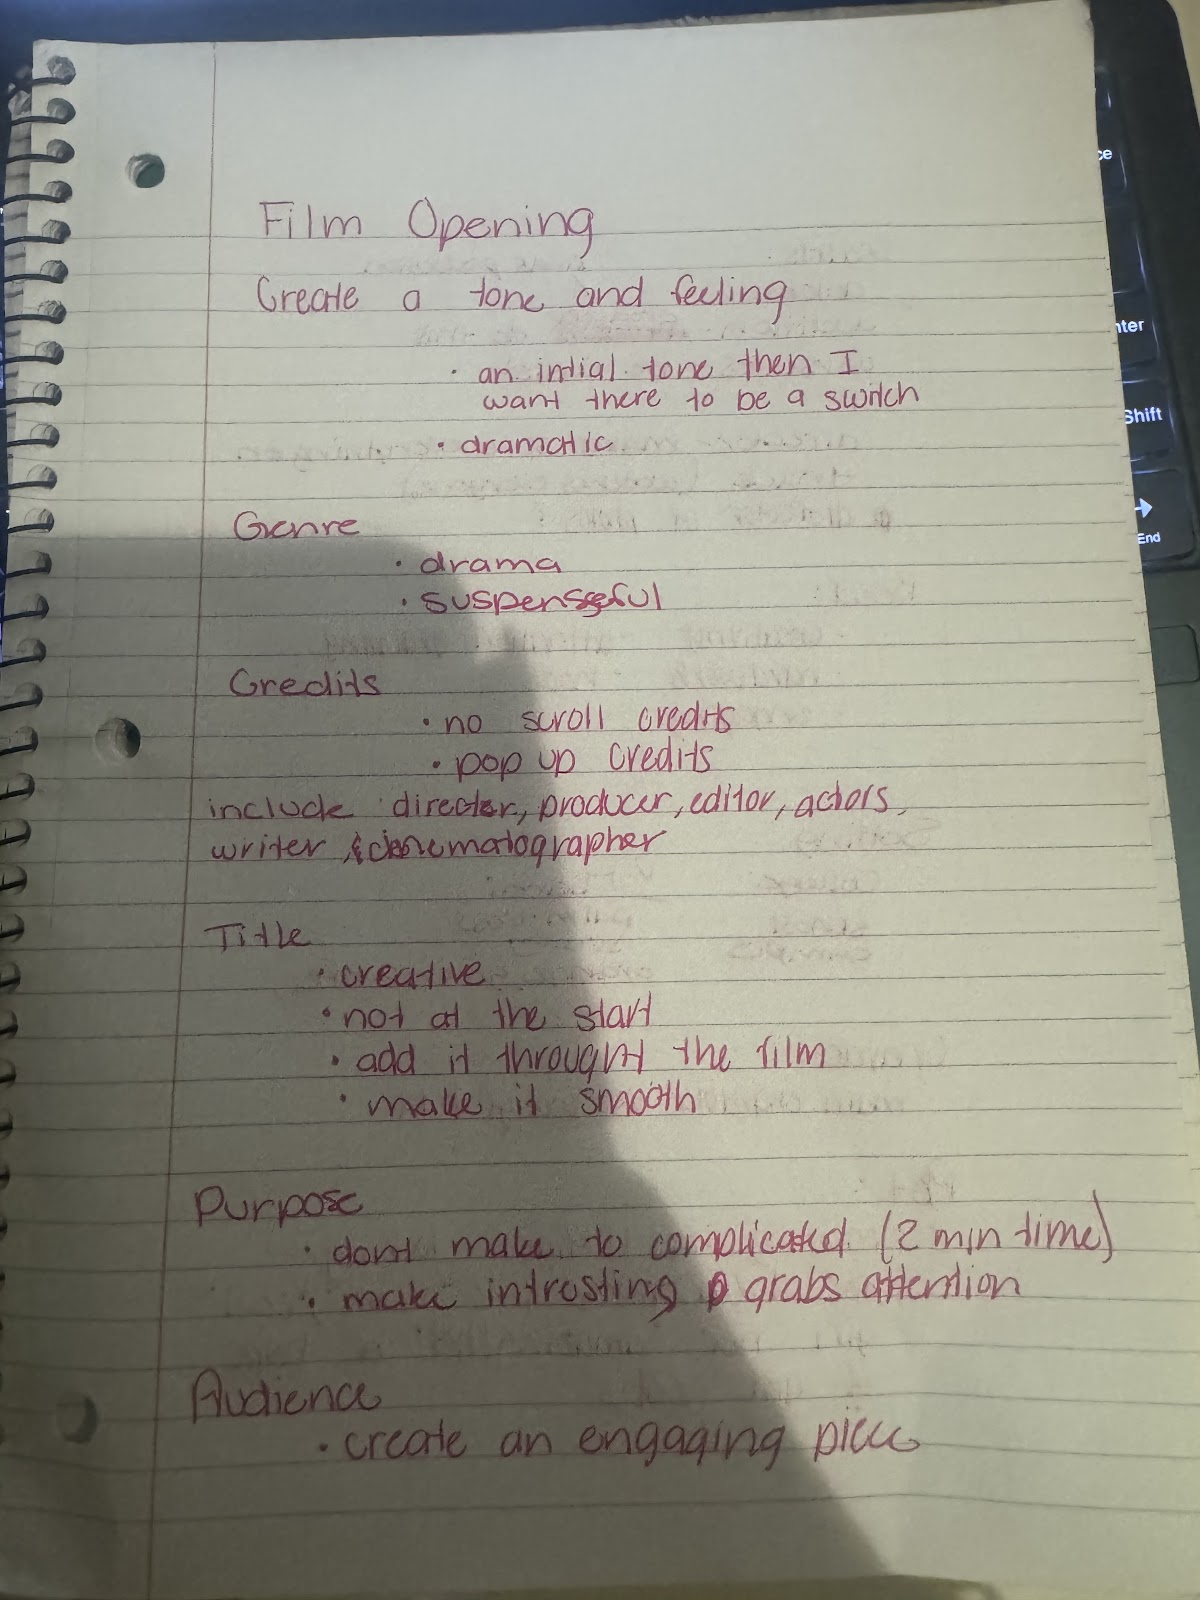 Film Opening
Create a tone and feeling
· an intial tone then I
want there to be a switch
· dramatic
Genre
· drama
· suspenseful
Credits
· no scroll credits
· pop up credits
include director, producer, editor, actors,
writer & cinematographer
Title
· creative
· not at the start
· add it throught the film
· make it smooth
Purpose
· dont make to complicated (2 min time)
· make intresting grabs attention
Audience
· create an engaging piece
ce
nter
Shift
→
End